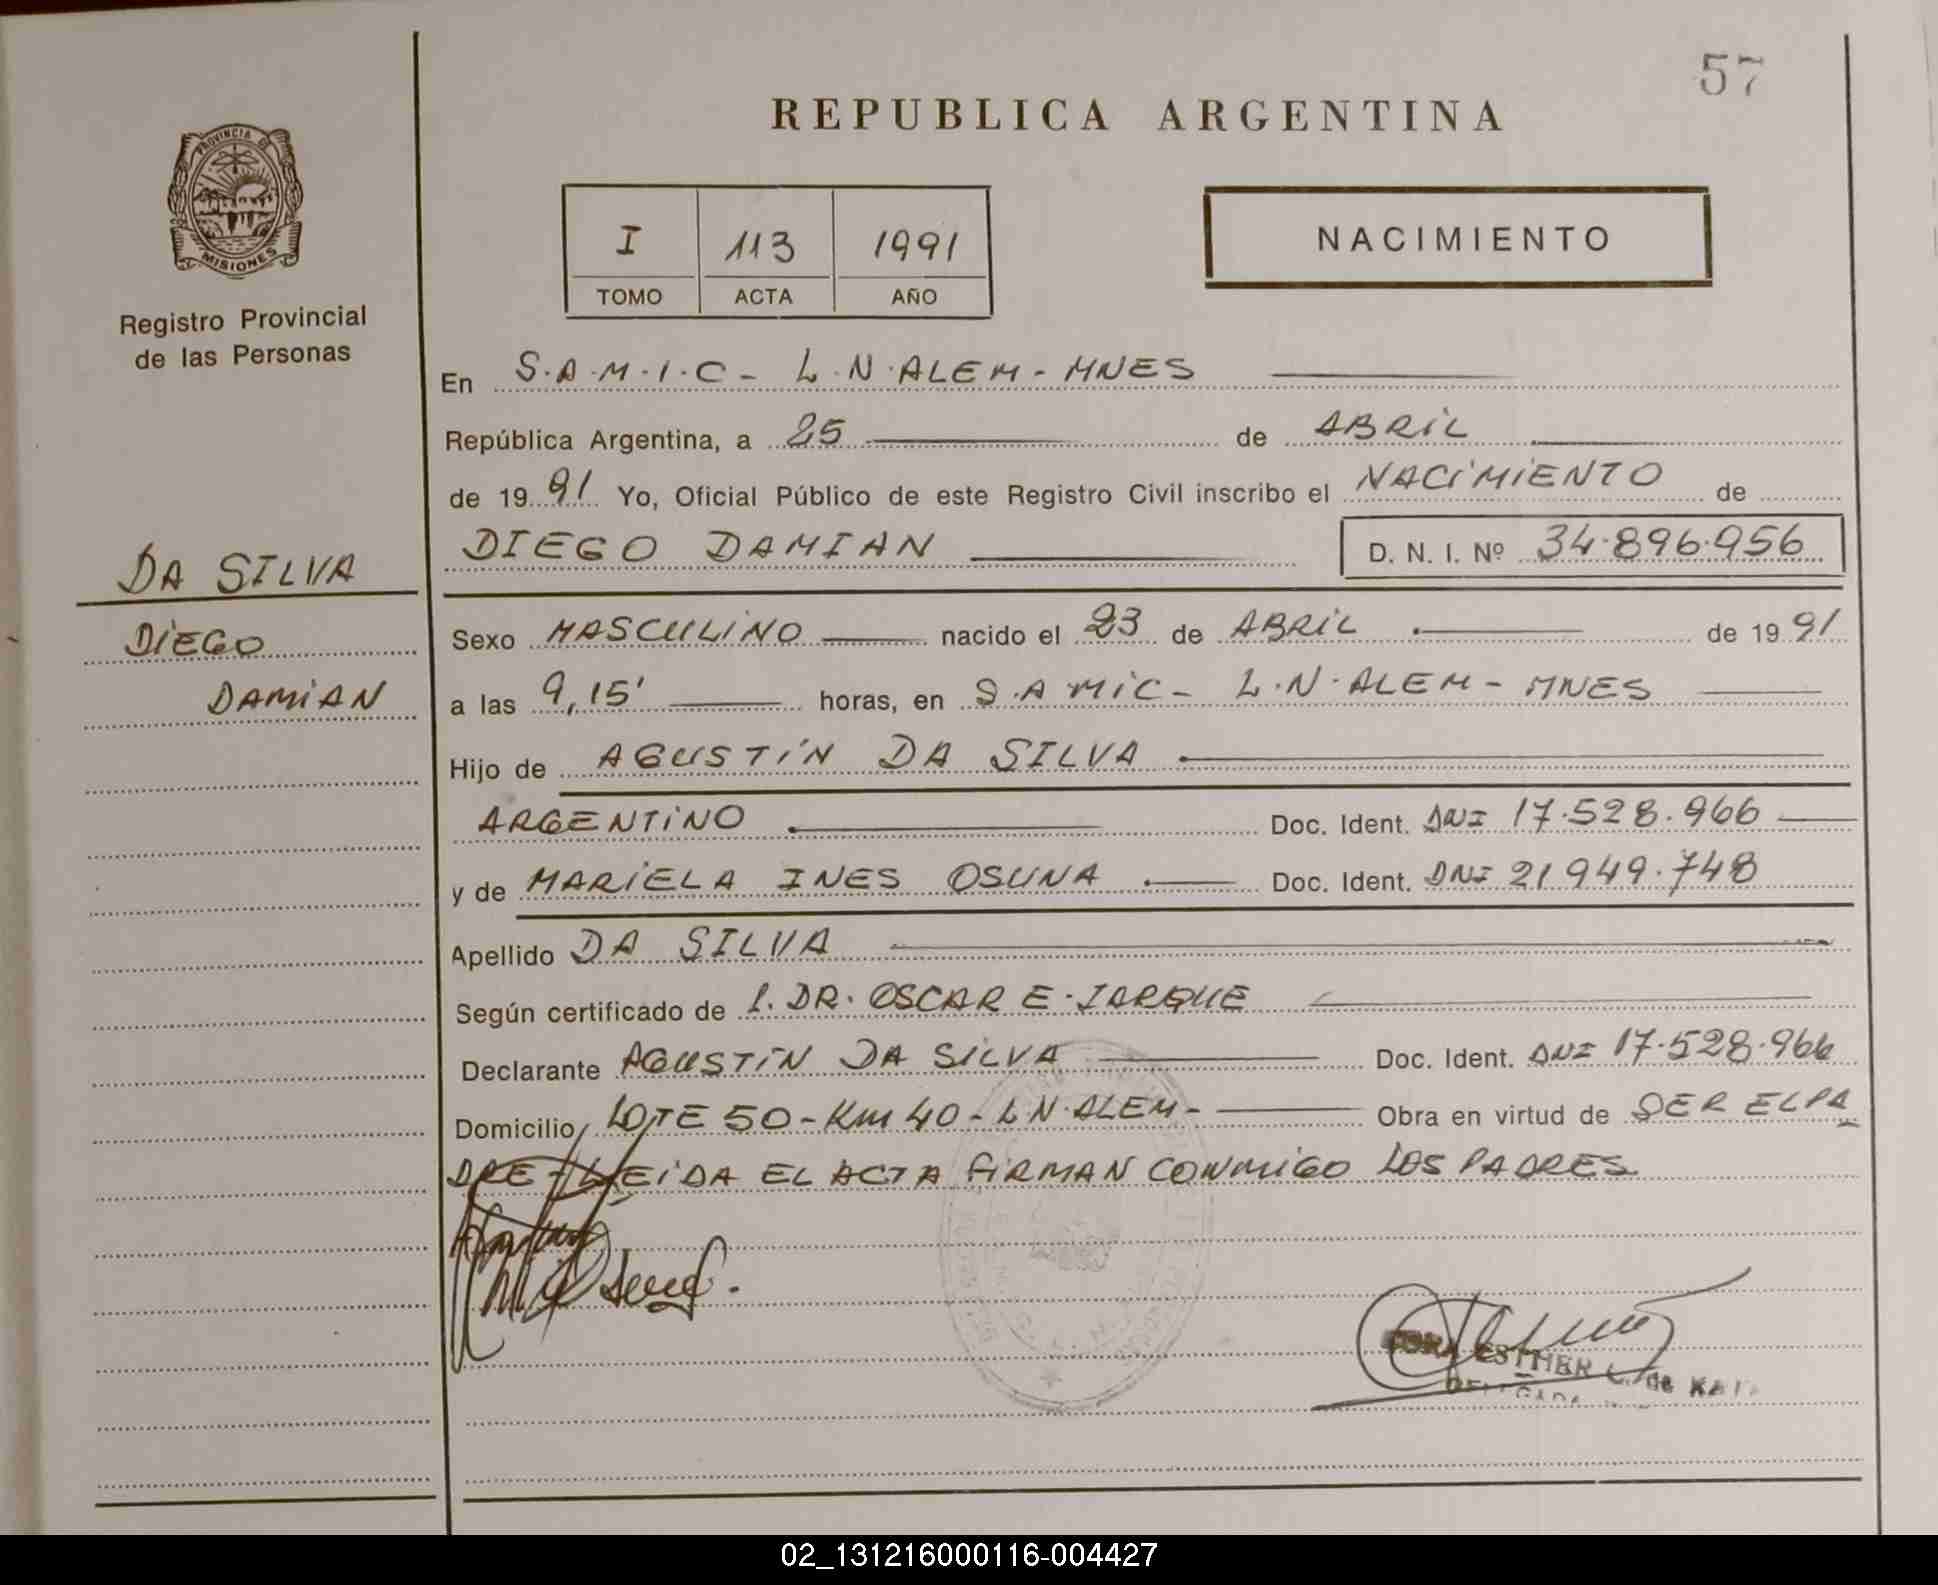 57
REPUBLICA ARGENTINA
PROVINCIA DE
MISIONES
Registro Provincial
de las Personas
I 113 1991
TOMO ACTA AÑO
NACIMIENTO
En S.A.M.I.C - L.N.ALEM - MNES
República Argentina, a 25 de ABRIL
de 19 91 Yo, Oficial Público de este Registro Civil inscribo el NACIMIENTO de
DIEGO DAMIAN D. N. I. Nº 34.896.956
DA SILVA
DIEGO
DAMIAN
Sexo MASCULINO nacido el 23 de ABRIL de 19 91
a las 9,15' horas, en S.A MIC - L.N.ALEM - MNES
Hijo de AGUSTIN DA SILVA
ARGENTINO Doc. Ident. DNI 17.528.966
y de MARIELA INES OSUNA Doc. Ident. DNI 21949.748
Apellido DA SILVA
Según certificado de DR. OSCAR E. JARQUE
Declarante AGUSTIN DA SILVA Doc. Ident. DNI 17.528.966
Domicilio LOTE 50 - Km 40 - L N.ALEM - Obra en virtud de SER EL PA
DRE - LEIDA EL ACTA FIRMAN CONMIGO LOS PADRES
ESTHER de
02_131216000116-004427